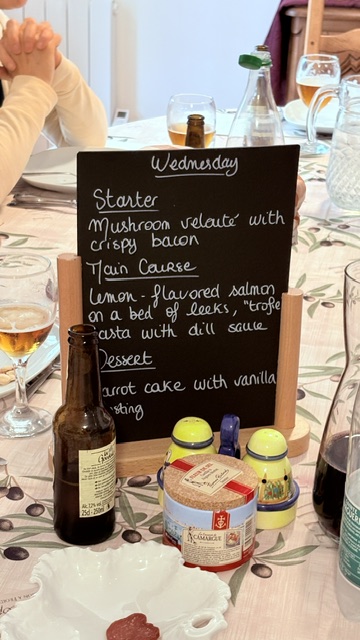 Wednesday
Starter
Mushroom velouté with
crispy bacon
Main Course
Lemon-flavored salmon
on a bed of leeks, "trofie
asta with dill sauce
Dessert
arrot cake with vanilla
sting
CAMARGUE
25cl - 250ml